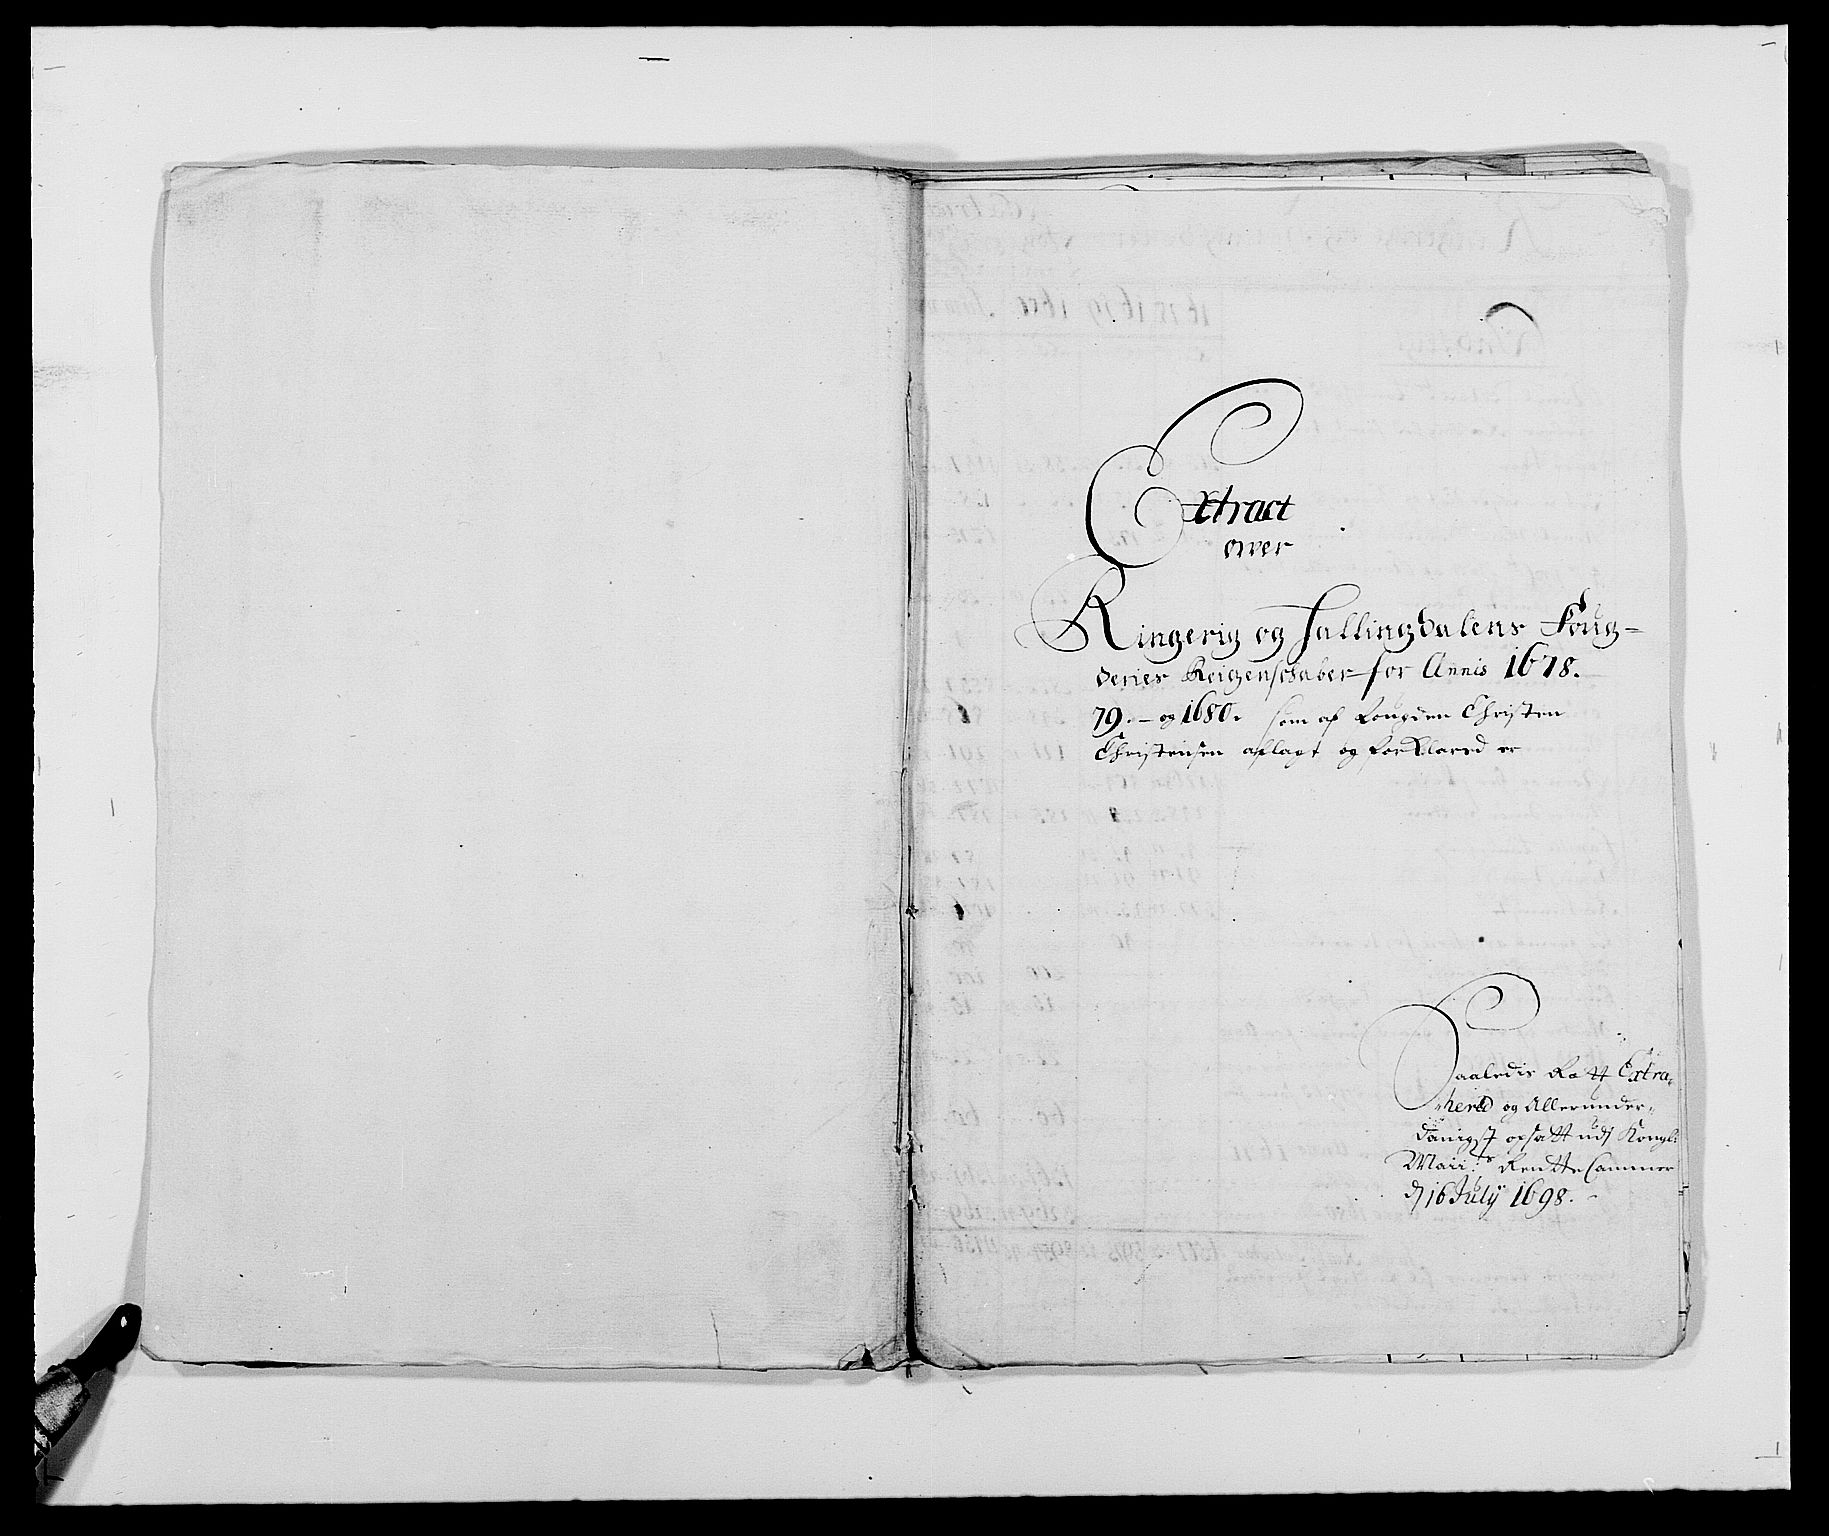 Extract
over
Ringerig og Hallingdalens Foug-
deries Reigenschaber for Annis 1678.
79. - og 1680. som af Fougden Christen
Christensen aflagt og forklared er
Saaledis Rætt Extra-
herid og Allerunder-
danigst opsatt udj Kongl:
Maii:ts Rentte Cammer
d/ 16 July 1698. -